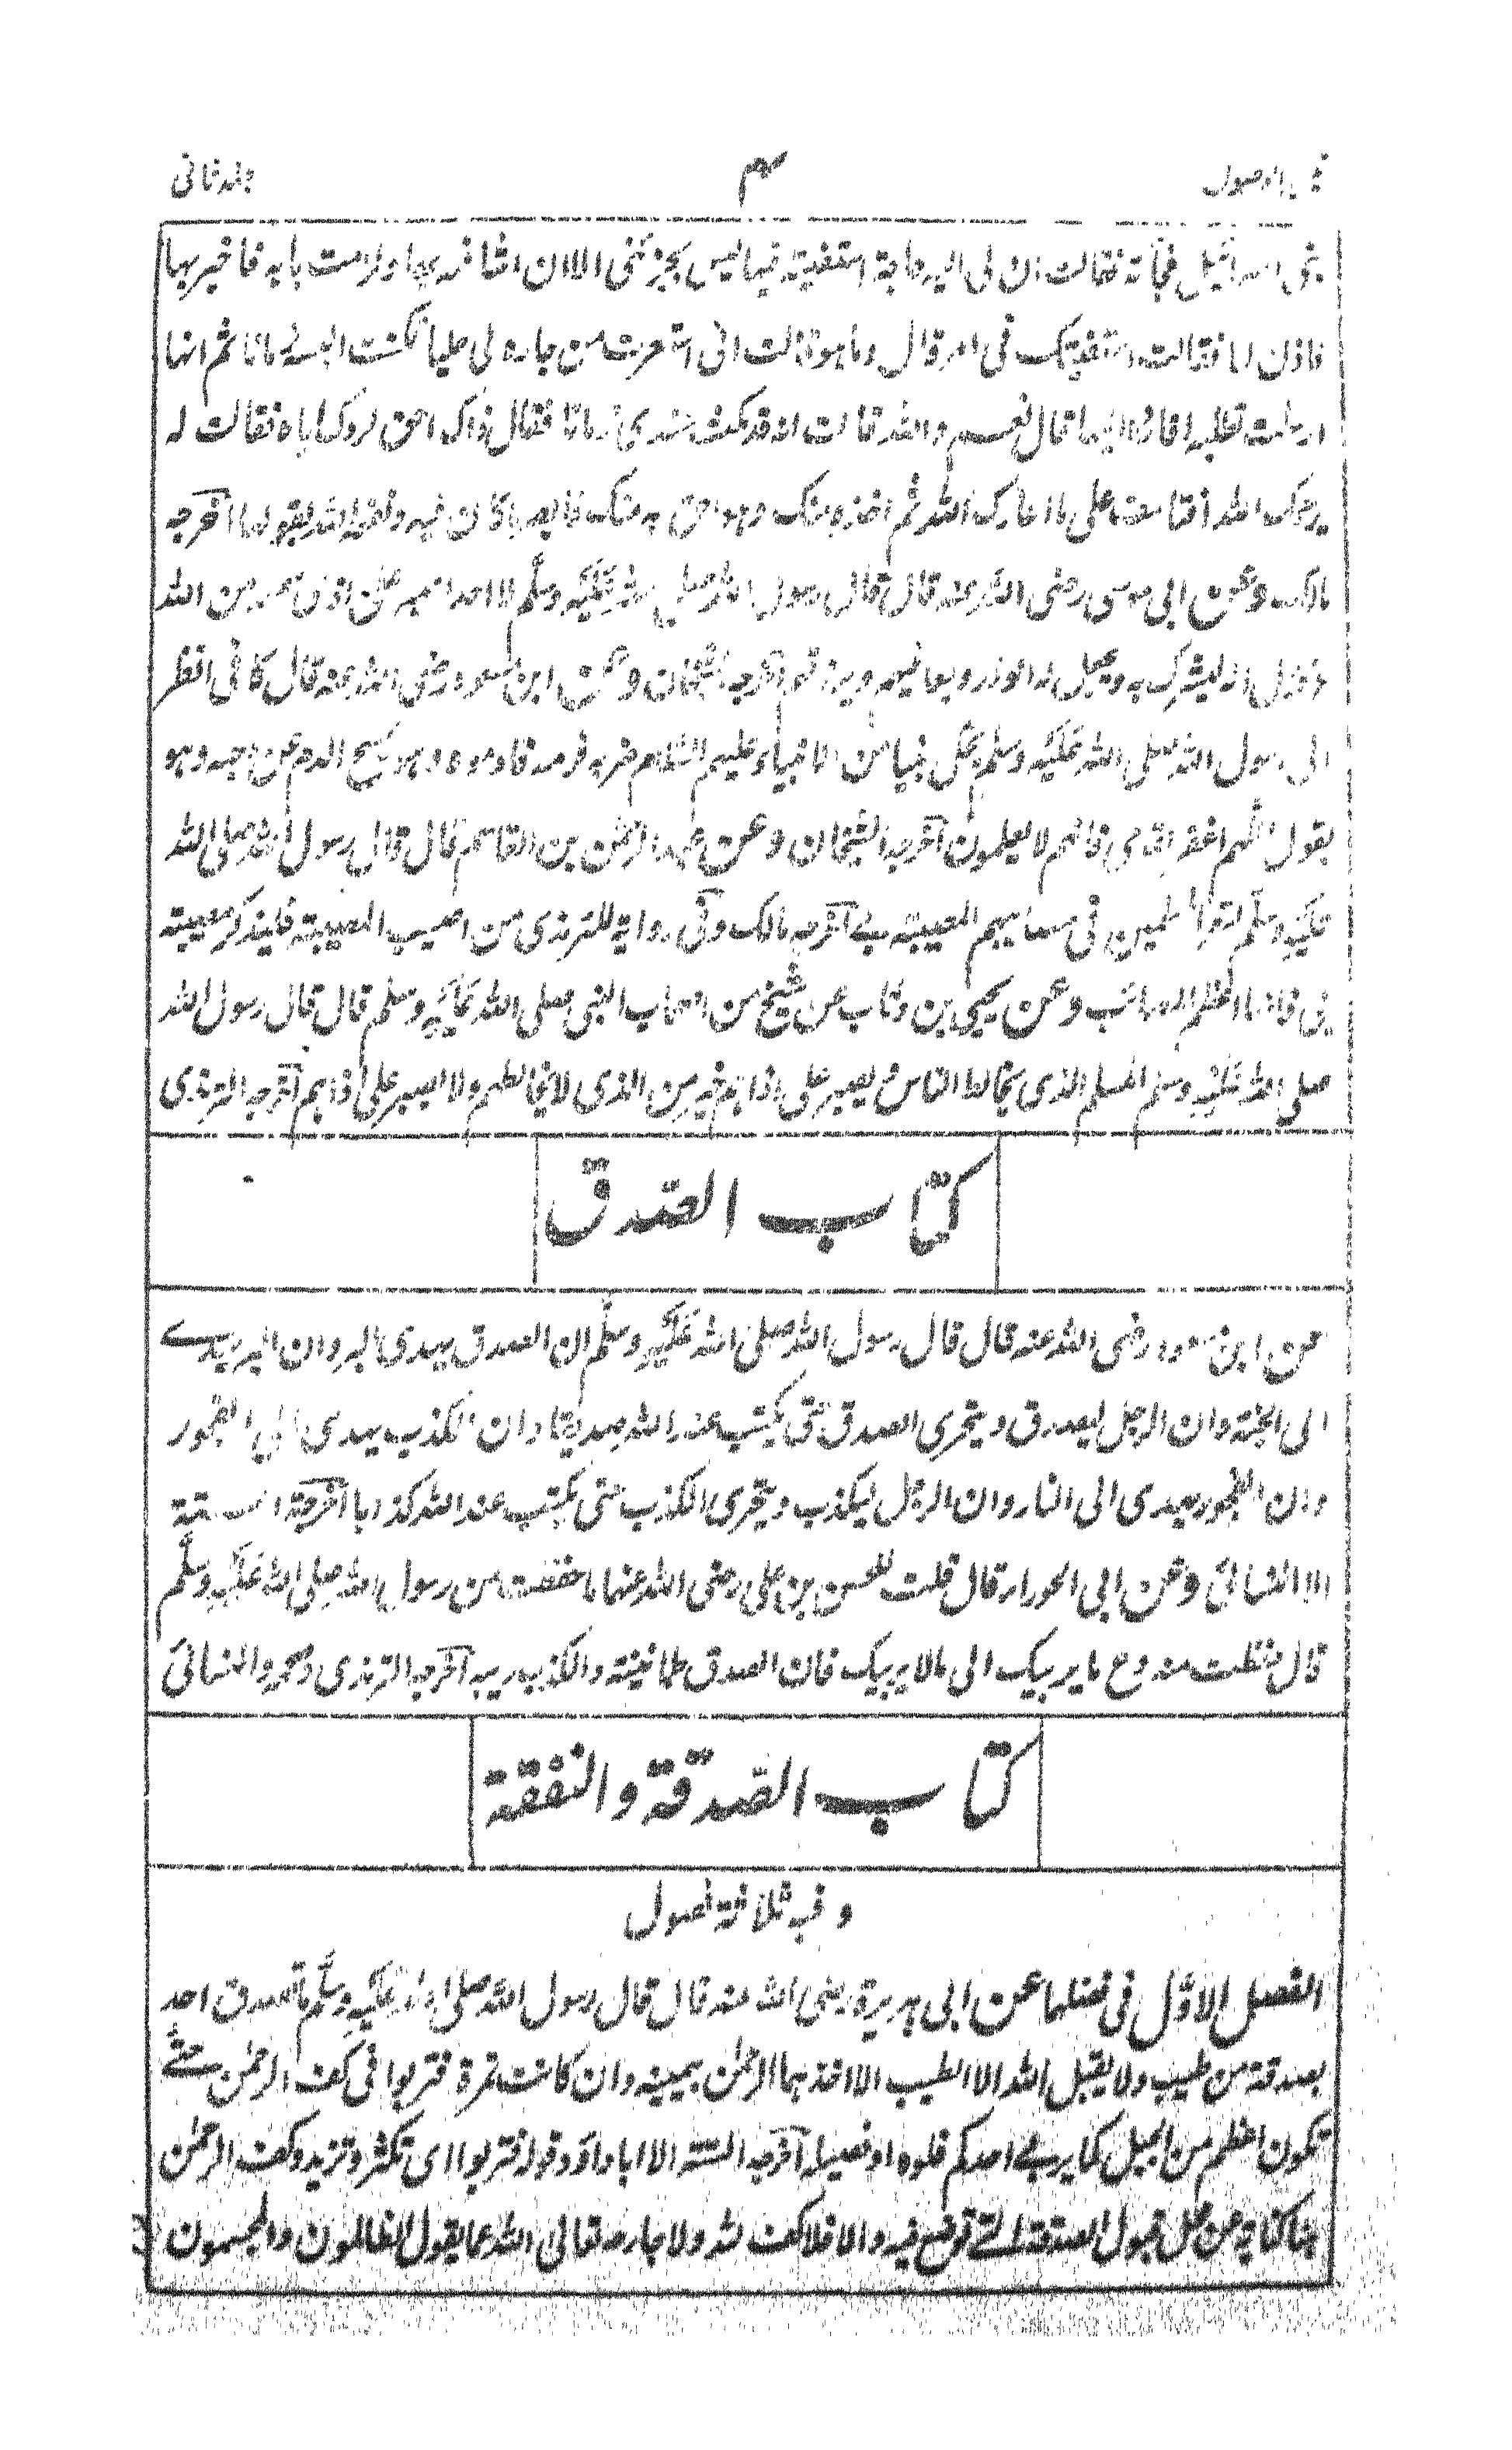 جلد ثانی
بنی اسرائیل فجأته فقالت ان لی الیه حاجة استفتیته فیها لیس یجزئنی الا ان اشافهه بها ولزمت بابه فاخبر بها
فاذن لها فقالت استفتیک فی امر قال وما هو قالت انی استعرت من جارة لی حلیا فکنت البسه زمانا ثم انها
ارسلت تطلبه افارده الیها قال نعم والله قالت انه قد مکث عندی زمانا فقال ذاک احق لردک ایاه فقالت له
یرحمک الله أفتاسف علی ما اعارک الله ثم اخذه منک وهو احق به منک فابصر ما کان فیه ونفعه الله بقولها اخرجه
مالک وعن ابی موسی رضی الله عنه قال قال رسول الله صلی الله علیه وسلم لا احد اصبر علی اذی یسمعه من الله
عزوجل انه لیشرک به ویجعل له الولد ویعافیهم ویرزقهم اخرجه الشیخان وعن ابن مسعود رضی الله عنه قال کانی انظر
الی رسول الله صلی الله علیه وسلم یحکی نبیا من الانبیاء علیهم السلام ضربه قومه فادموه وهو یمسح الدم عن وجهه وهو
یقول اللهم اغفر لقومی فانهم لا یعلمون اخرجه الشیخان وعن عبد الرحمٰن بن القاسم قال قال رسول الله صلی الله
علیه وسلم لیعز المسلمین فی مصایبهم المصیبة بی اخرجه مالک وفی روایة للترمذی من اصیب المصیبة فلیذکر مصیبته
بی فانها اعظم المصائب وعن یحیی بن وثاب عن شیخ من اصحاب النبی صلی الله علیه وسلم قال قال رسول الله
صلی الله علیه وسلم المسلم الذی یخالط الناس ویصبر علی اذاهم خیر من الذی لا یخالطهم ولا یصبر علی اذاهم اخرجه الترمذی
کتاب الصدق
عن ابن مسعود رضی الله عنه قال قال رسول الله صلی الله علیه وسلم ان الصدق یهدی الی البر وان البر یهدی
الی الجنة وان الرجل لیصدق ویتحری الصدق حتی یکتب عند الله صدیقا وان الکذب یهدی الی الفجور
وان الفجور یهدی الی النار وان الرجل لیکذب ویتحری الکذب حتی یکتب عند الله کذابا اخرجه الستة
الا النسائی وعن ابی الحوراء قال قلت للحسن بن علی رضی الله عنهما ما حفظت من رسول الله صلی الله علیه وسلم
قال حفظت منه دع ما یریبک الی مالا یریبک فان الصدق طمانینة والکذب ریبة اخرجه الترمذی وصححه والنسائی
کتاب الصدقة والنفقة
وفیه ثلاثة فصول
الفصل الاول فی فضلها عن ابی هریرة رضی الله عنه قال قال رسول الله صلی الله علیه وسلم ما تصدق احد
بصدقة من طیب ولا یقبل الله الا الطیب الا اخذها الرحمٰن بیمینه وان کانت تمرة فتربوا فی کف الرحمٰن حتی
تکون اعظم من الجبل کما یربی احدکم فلوه او فصیله اخرجه الستة الا ابا داؤد وقوله فتربوا ای تکثر وتزید وکف الرحمٰن
هنا کنایة عن محل قبول الصدقة التی توضع فیه والا فلا کف لله ولا جارحة تعالی الله عما یقول الظالمون والمجسمون